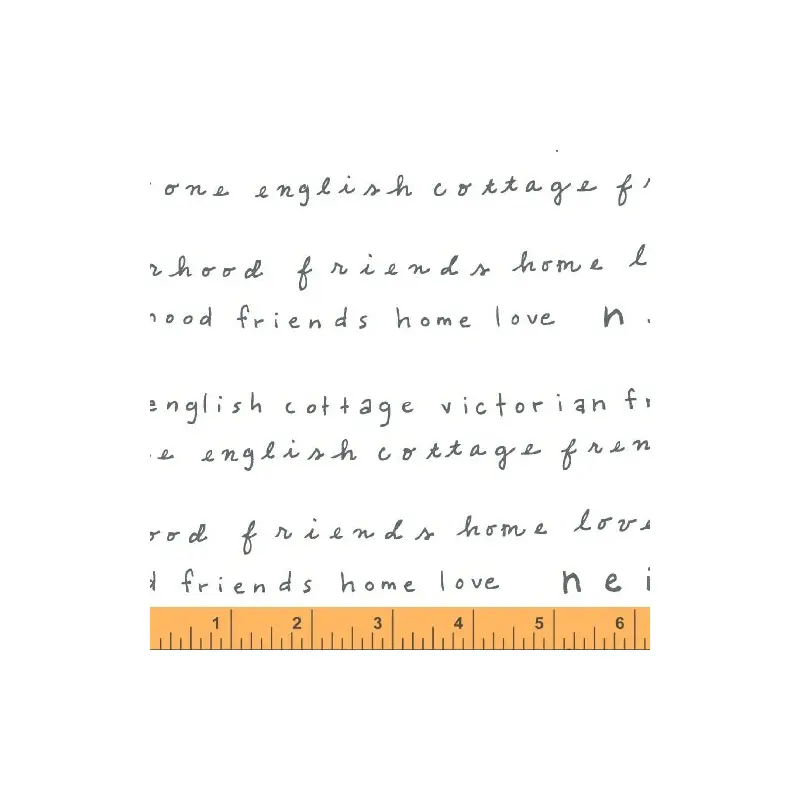 one english cottage
rhood friends home l
ood friends home love n
english cottage victorian fr
e english cottage fren
ood friends home love
d friends home love nei
1 2 3 4 5 6